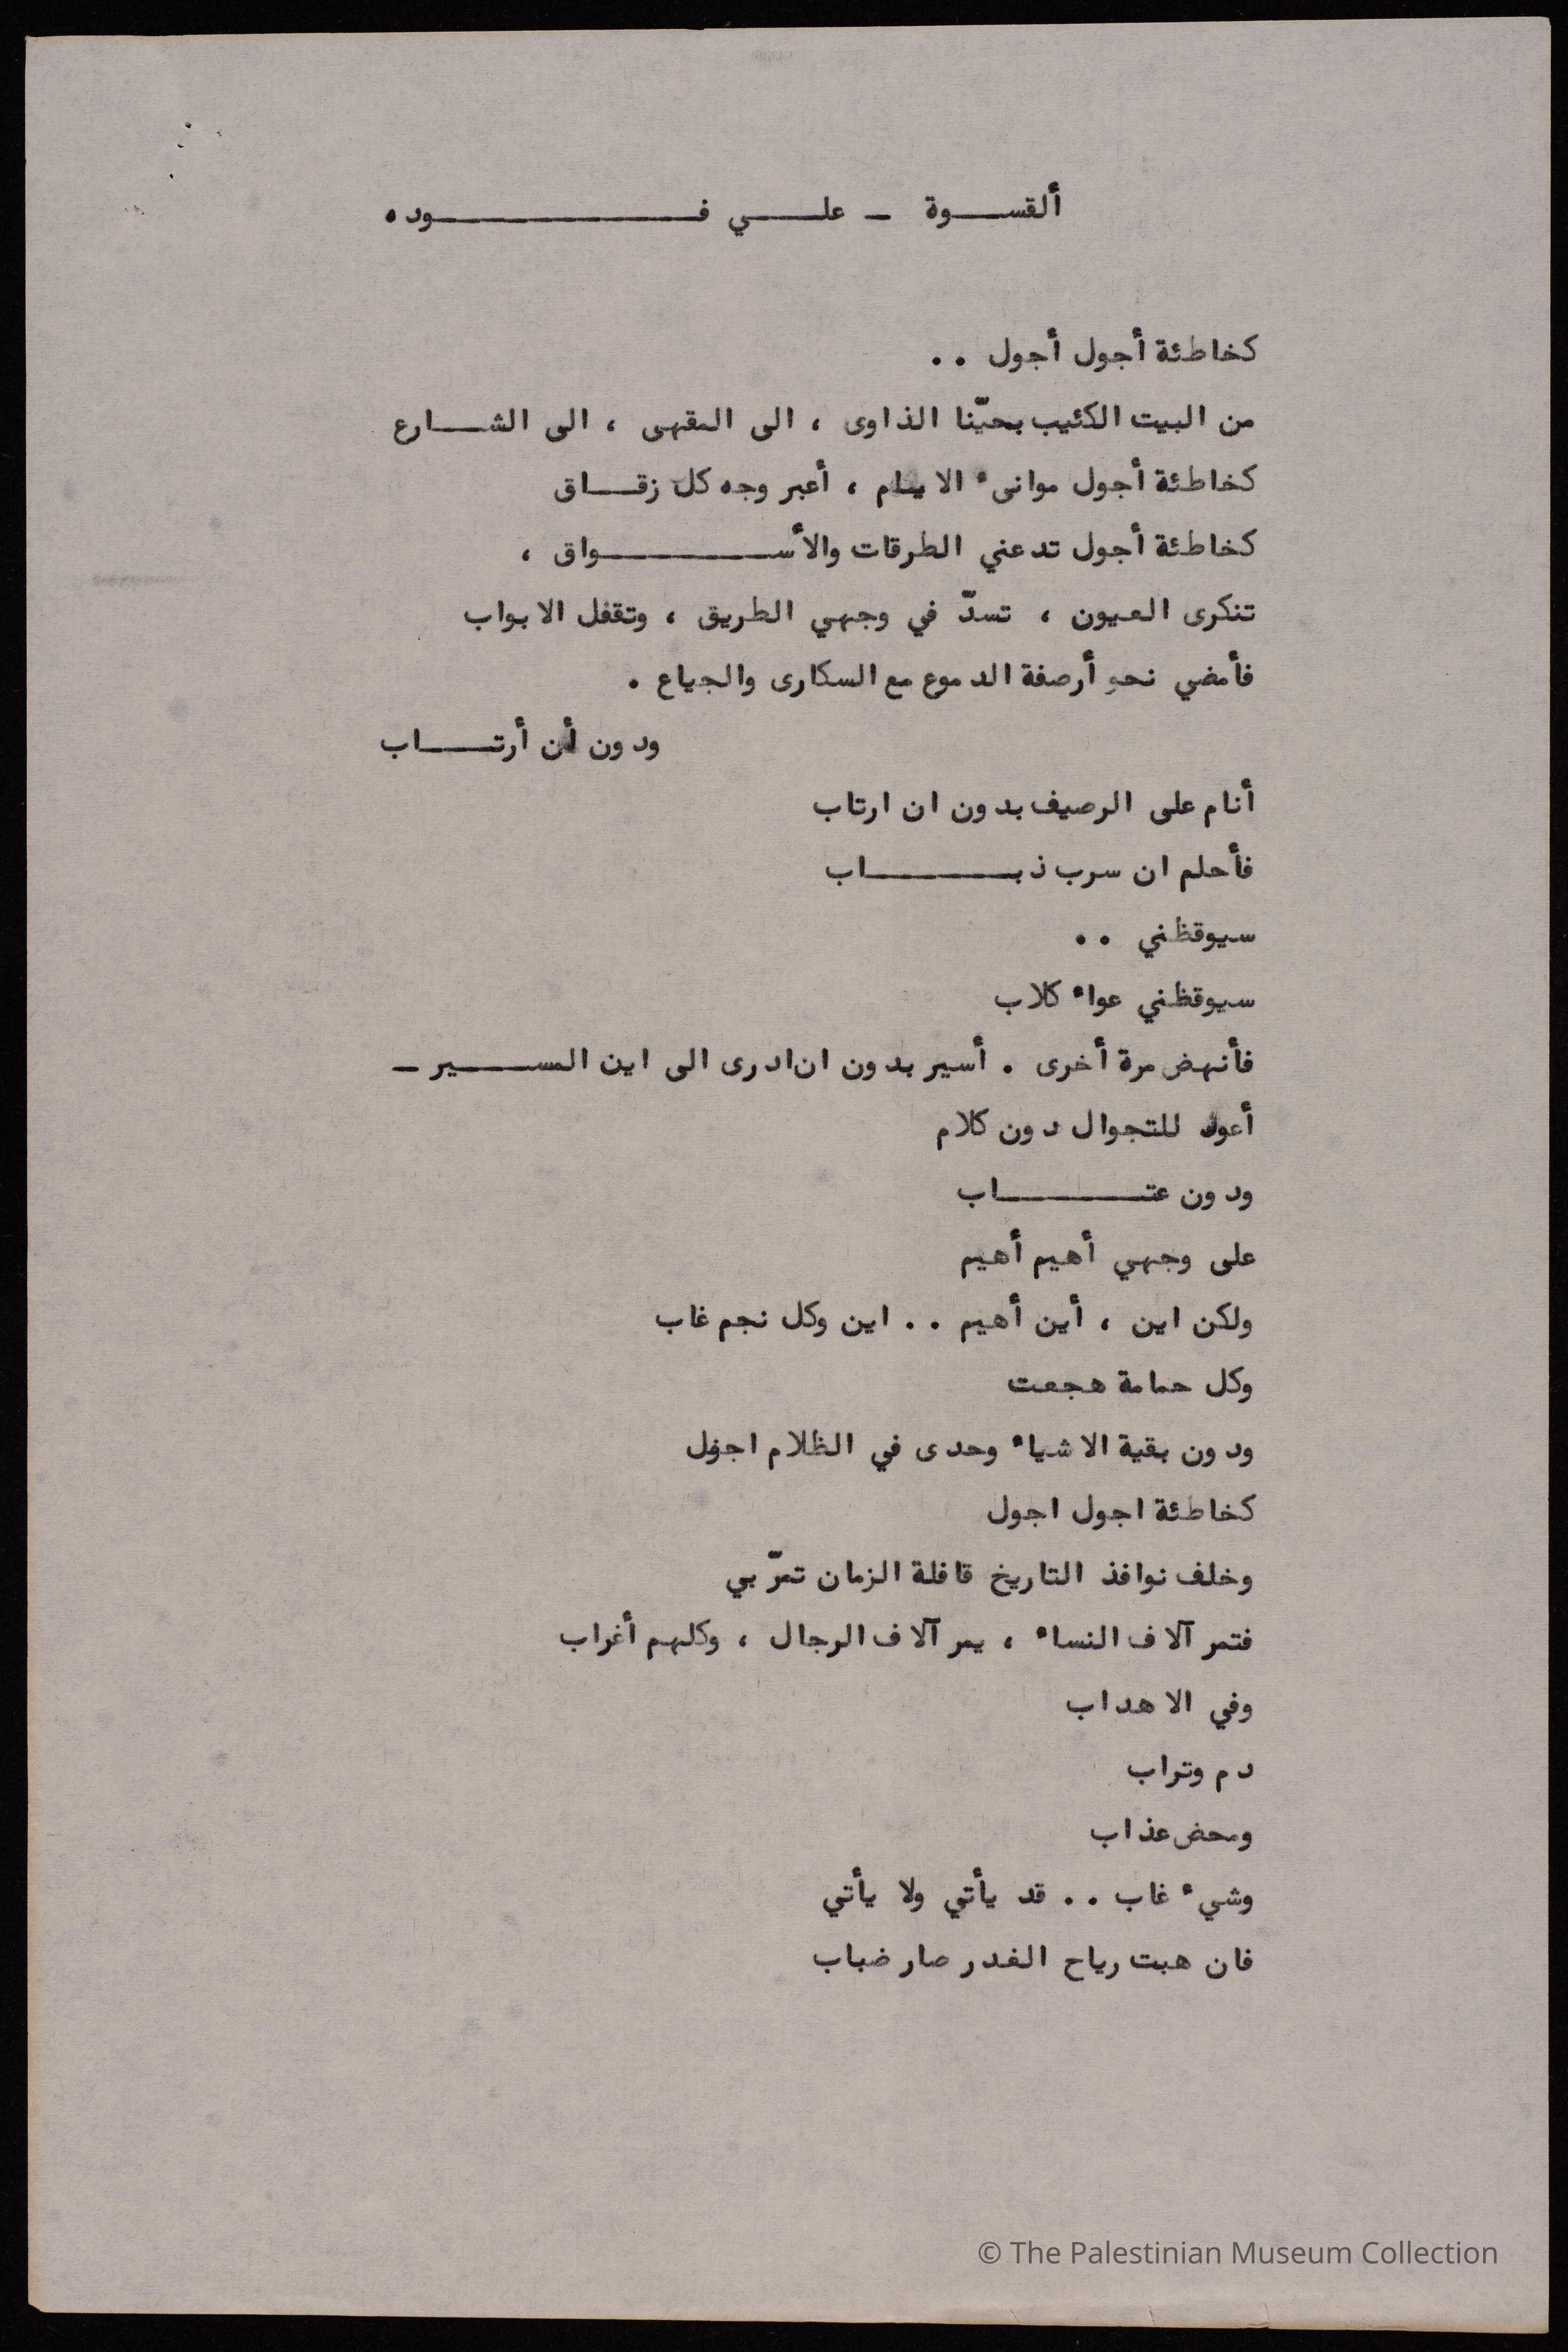 ألقســوة ـ علــي فــــــــوده
كخاطئة أجول أجول ..
من البيت الكئيب بحيّنا الذاوى ، الى المقهى ، الى الشــارع
كخاطئة أجول موانىء الايام ، أعبر وجه كل زقــاق
كخاطئة أجول تدعني الطرقات والأســــــواق ،
تنكرى العيون ، تسدّ في وجهي الطريق ، وتقفل الابواب
فأمضي نحو أرصفة الدموع مع السكارى والجياع .
ودون أن أرتــاب
أنام على الرصيف بدون ان ارتاب
فأحلم ان سرب ذبـــــاب
سيوقظني ..
سيوقظني عواء كلاب
فأنهض مرة أخرى . أسير بدون ان ادرى الى اين المســير ـ
أعود للتجوال دون كلام
ودون عتـــــاب
على وجهي أهيم أهيم
ولكن اين ، أين أهيم .. اين وكل نجم غاب
وكل حمامة هجعت
ودون بقية الاشياء وحدى في الظلام اجول
كخاطئة اجول اجول
وخلف نوافذ التاريخ قافلة الزمان تمرّ بي
فتمر آلاف النساء ، يمر آلاف الرجال ، وكلهم أغراب
وفي الاهداب
دم وتراب
ومحض عذاب
وشيء غاب .. قد يأتي ولا يأتي
فان هبت رياح الغدر صار ضباب
© The Palestinian Museum Collection